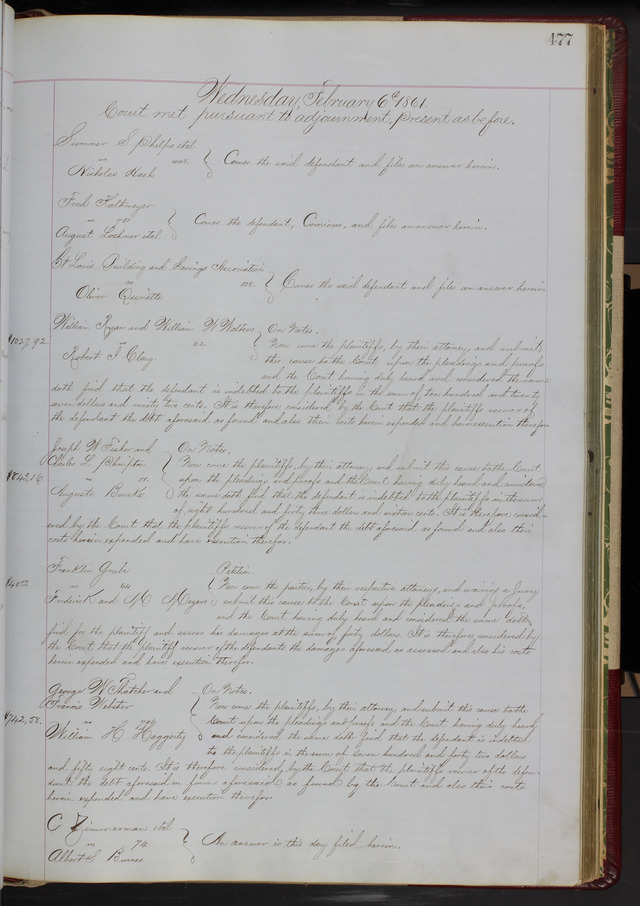 477
Wednesday, February 6th 1861.
Court met pursuant to adjournment, present as before.
Sumner S. Phelps etal
vs
Nicholas Hack
Comes the said defendant and files an answer herein.
Fred
vs 721
August Lochner etal
Comes the defendant, and files an answer herein.
St Louis Building and Savings Association
vs
Oliver
Comes the said defendant and files an answer herein
William Ryan and William W Walker
62.
Robert T Clay.
On Notes.
$1027,92
Now come the plaintiffs, by their attorney, and submit
this cause to the Court upon the pleadings and proofs
and the Court having duly heard and considered the same
doth find that the defendant is indebted to the plaintiffs in the sum of ten hundred and twenty
seven dollars and ninety two cents. It is therefore considered by the Court that the plaintiffs recover of
the defendant the debt aforesaid as found and also their costs herein expended and have execution therefor.
Joseph W Fisher and
Charles L.
vs
August
On Notes.
$842,16
Now come the plaintiffs, by their attorney, and submit this cause to the Court
upon the pleadings and proofs and the Court having duly heard and considered
the same doth find that the defendant is indebted to the plaintiffs in the sum
of eight hundred and forty three dollars and sixteen cents. It is therefore consid-
ered by the Court that the plaintiffs recover of the defendant the debt aforesaid as found and also their
costs herein expended and have execution therefor.
Franklin
vs 64
Frederick and M Meyers
Petition.
Now come the parties, by their respective attorneys, and waiving a Jury
submit this cause to the Court upon the pleadings and proofs,
and the Court having duly heard and considered the same doth
find for the plaintiff and assess his damages at the sum of forty dollars. It is therefore considered by
the Court that the plaintiff recover of the defendants the damages aforesaid as assessed and also his costs
herein expended and have execution therefor.
George W Thatcher and
Francis Webster
vs
William H Haggerty
On Notes.
$742,58.
Now come the plaintiffs, by their attorney and submit this cause to the
Court upon the pleadings and proofs and the Court having duly heard
and considered the same doth find that the defendant is indebted
to the plaintiffs in the sum of seven hundred and forty two dollars
and fifty eight cents. It is therefore considered by the Court that the plaintiffs recover of the defen-
dant the debt aforesaid in form aforesaid as found by the Court and also their costs
herein expended and have execution therefor
C Zimmerman etal
vs 74
Albert S
An answer is this day filed herein.